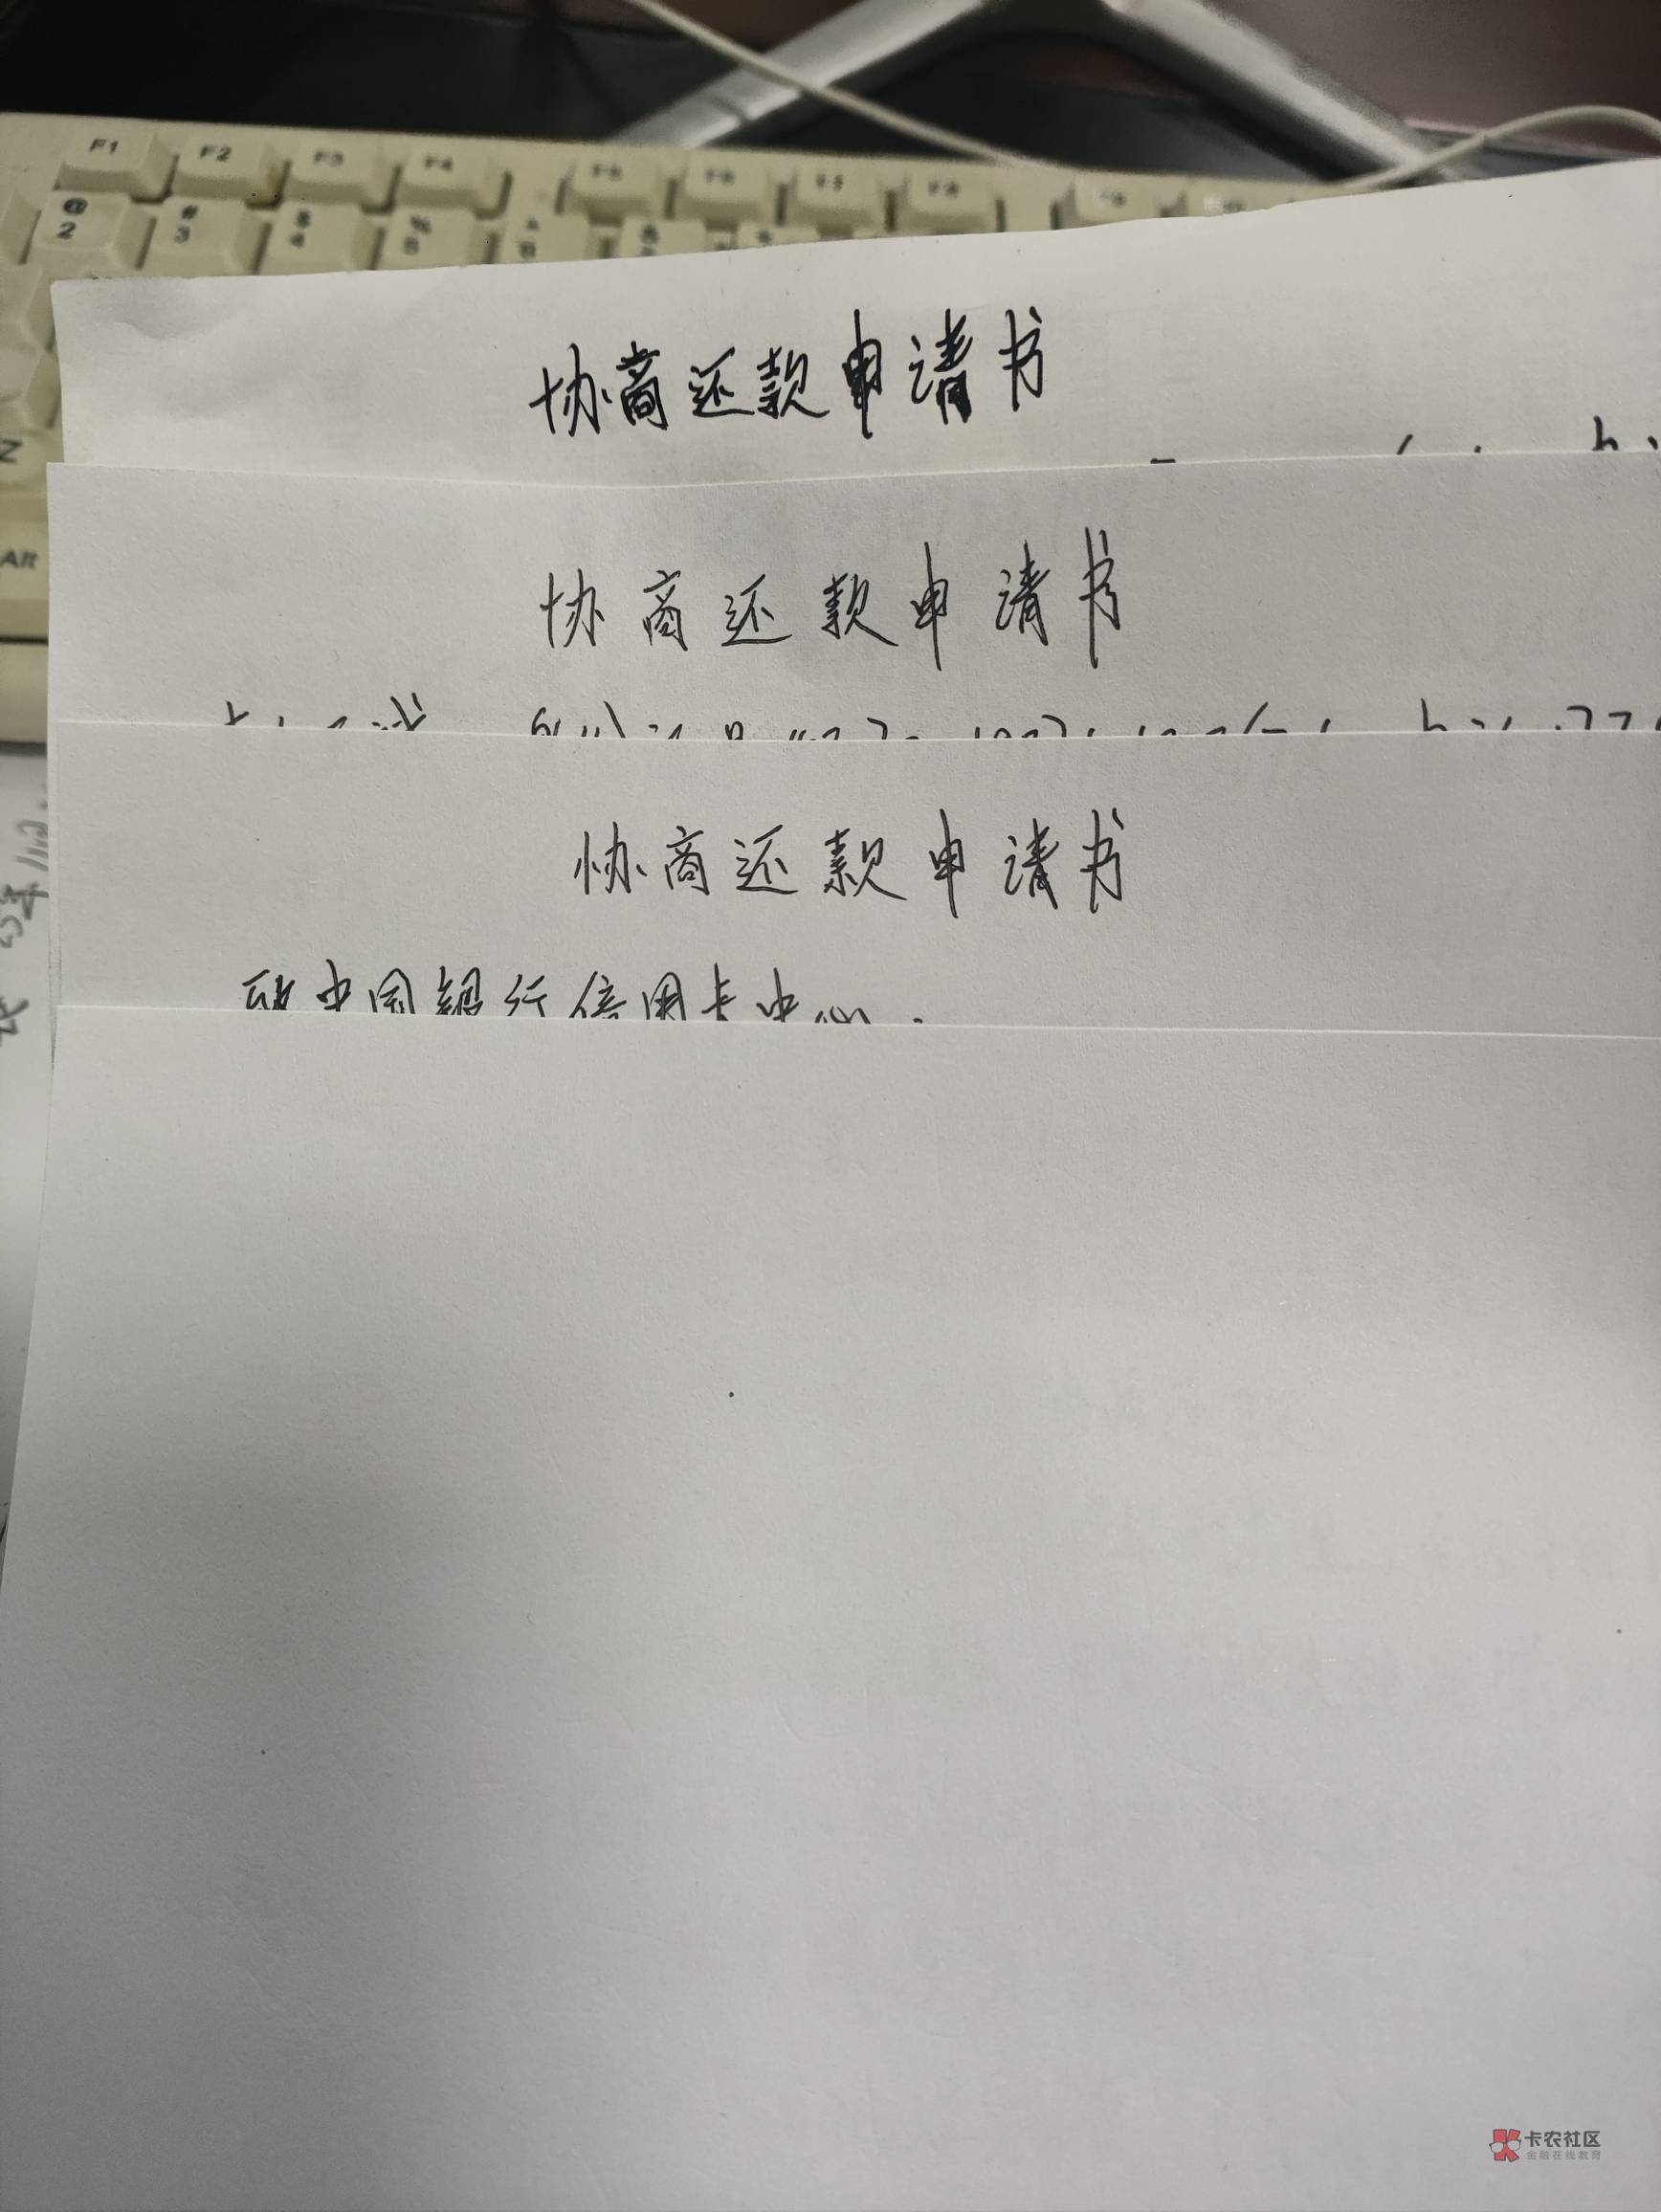 F1 F2 F3 F4 F5 F6 F7 F8 F9
@ # $ %
2 3 4 5
协商还款申请书
Z
Alt
协商还款申请书
协商还款申请书
中国银行信用卡中心
卡农社区
金融在线教育